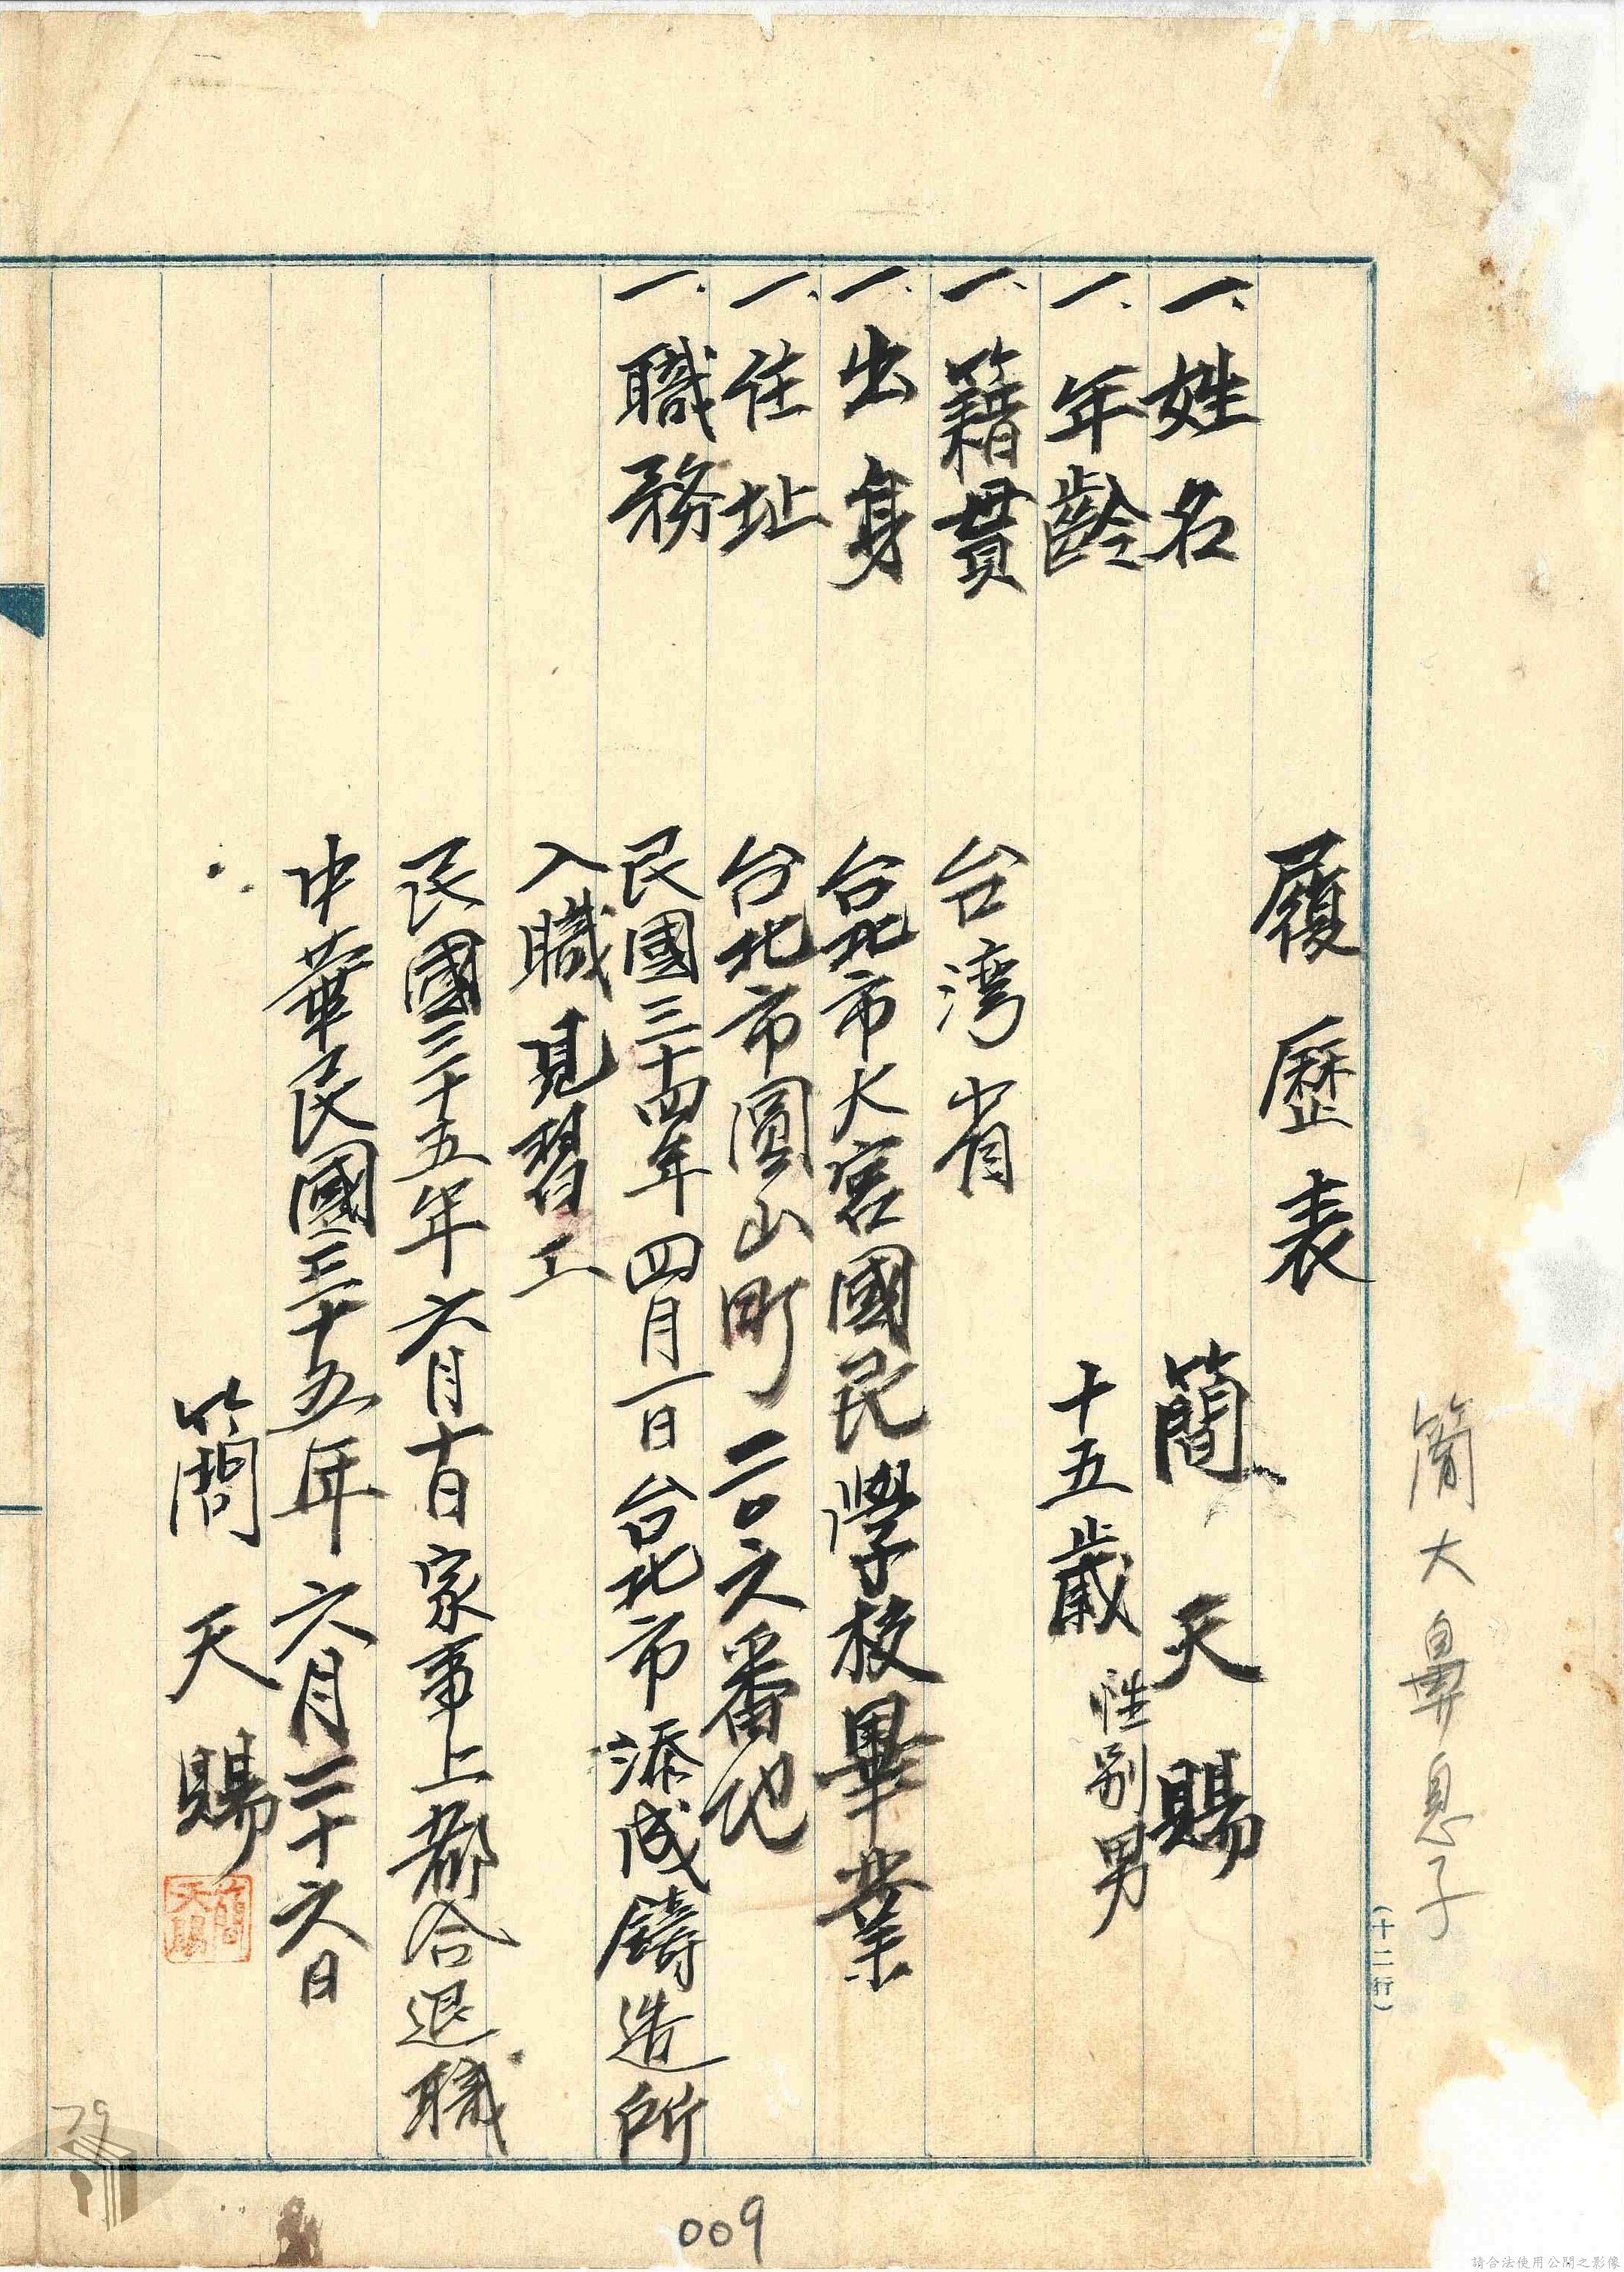 簡大鼻息子
(十二行)
履歷表
一、姓名 簡天賜
一、年齡 十五歲 性別男
一、籍貫 台湾省
一、出身 台北市大宮國民學校畢業
一、住址 台北市圓山町二〇六番地
一、職務 民國三十四年四月一日台北市添成鑄造所
入職見習工
民國三十五年六月十日家事上都合退職
中華民國三十五年六月二十六日
簡天賜
簡天賜
79
009
請合法使用公開之影像